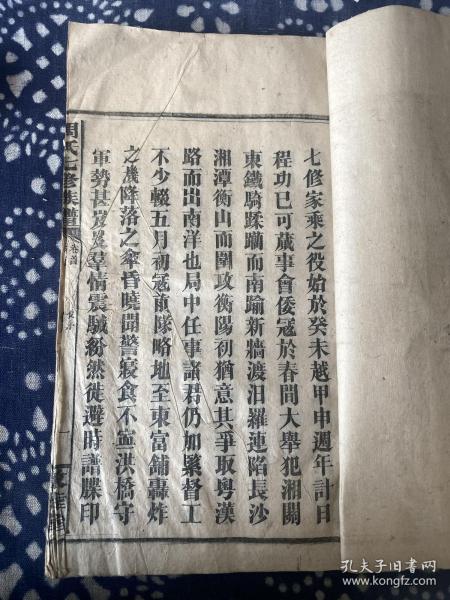 七修家乘之役始於癸未越甲申週年計日
程功已可蕆事會倭寇於春間大舉犯湘關
東鐵騎蹂躪而南踰新牆渡汨羅連陷長沙
湘潭衡山而圍攻衡陽初猶意其爭取粵漢
路而出南洋也局中任事諸君仍加緊督工
不少輟五月初寇前隊略地至東富鋪轟炸
之機降落之傘昏曉聞警寢食不寧洪橋守
軍勢甚岌岌羣情震駴紛然徙避時譜牒印
周氏七修族譜
卷首
一
孔夫子旧书网